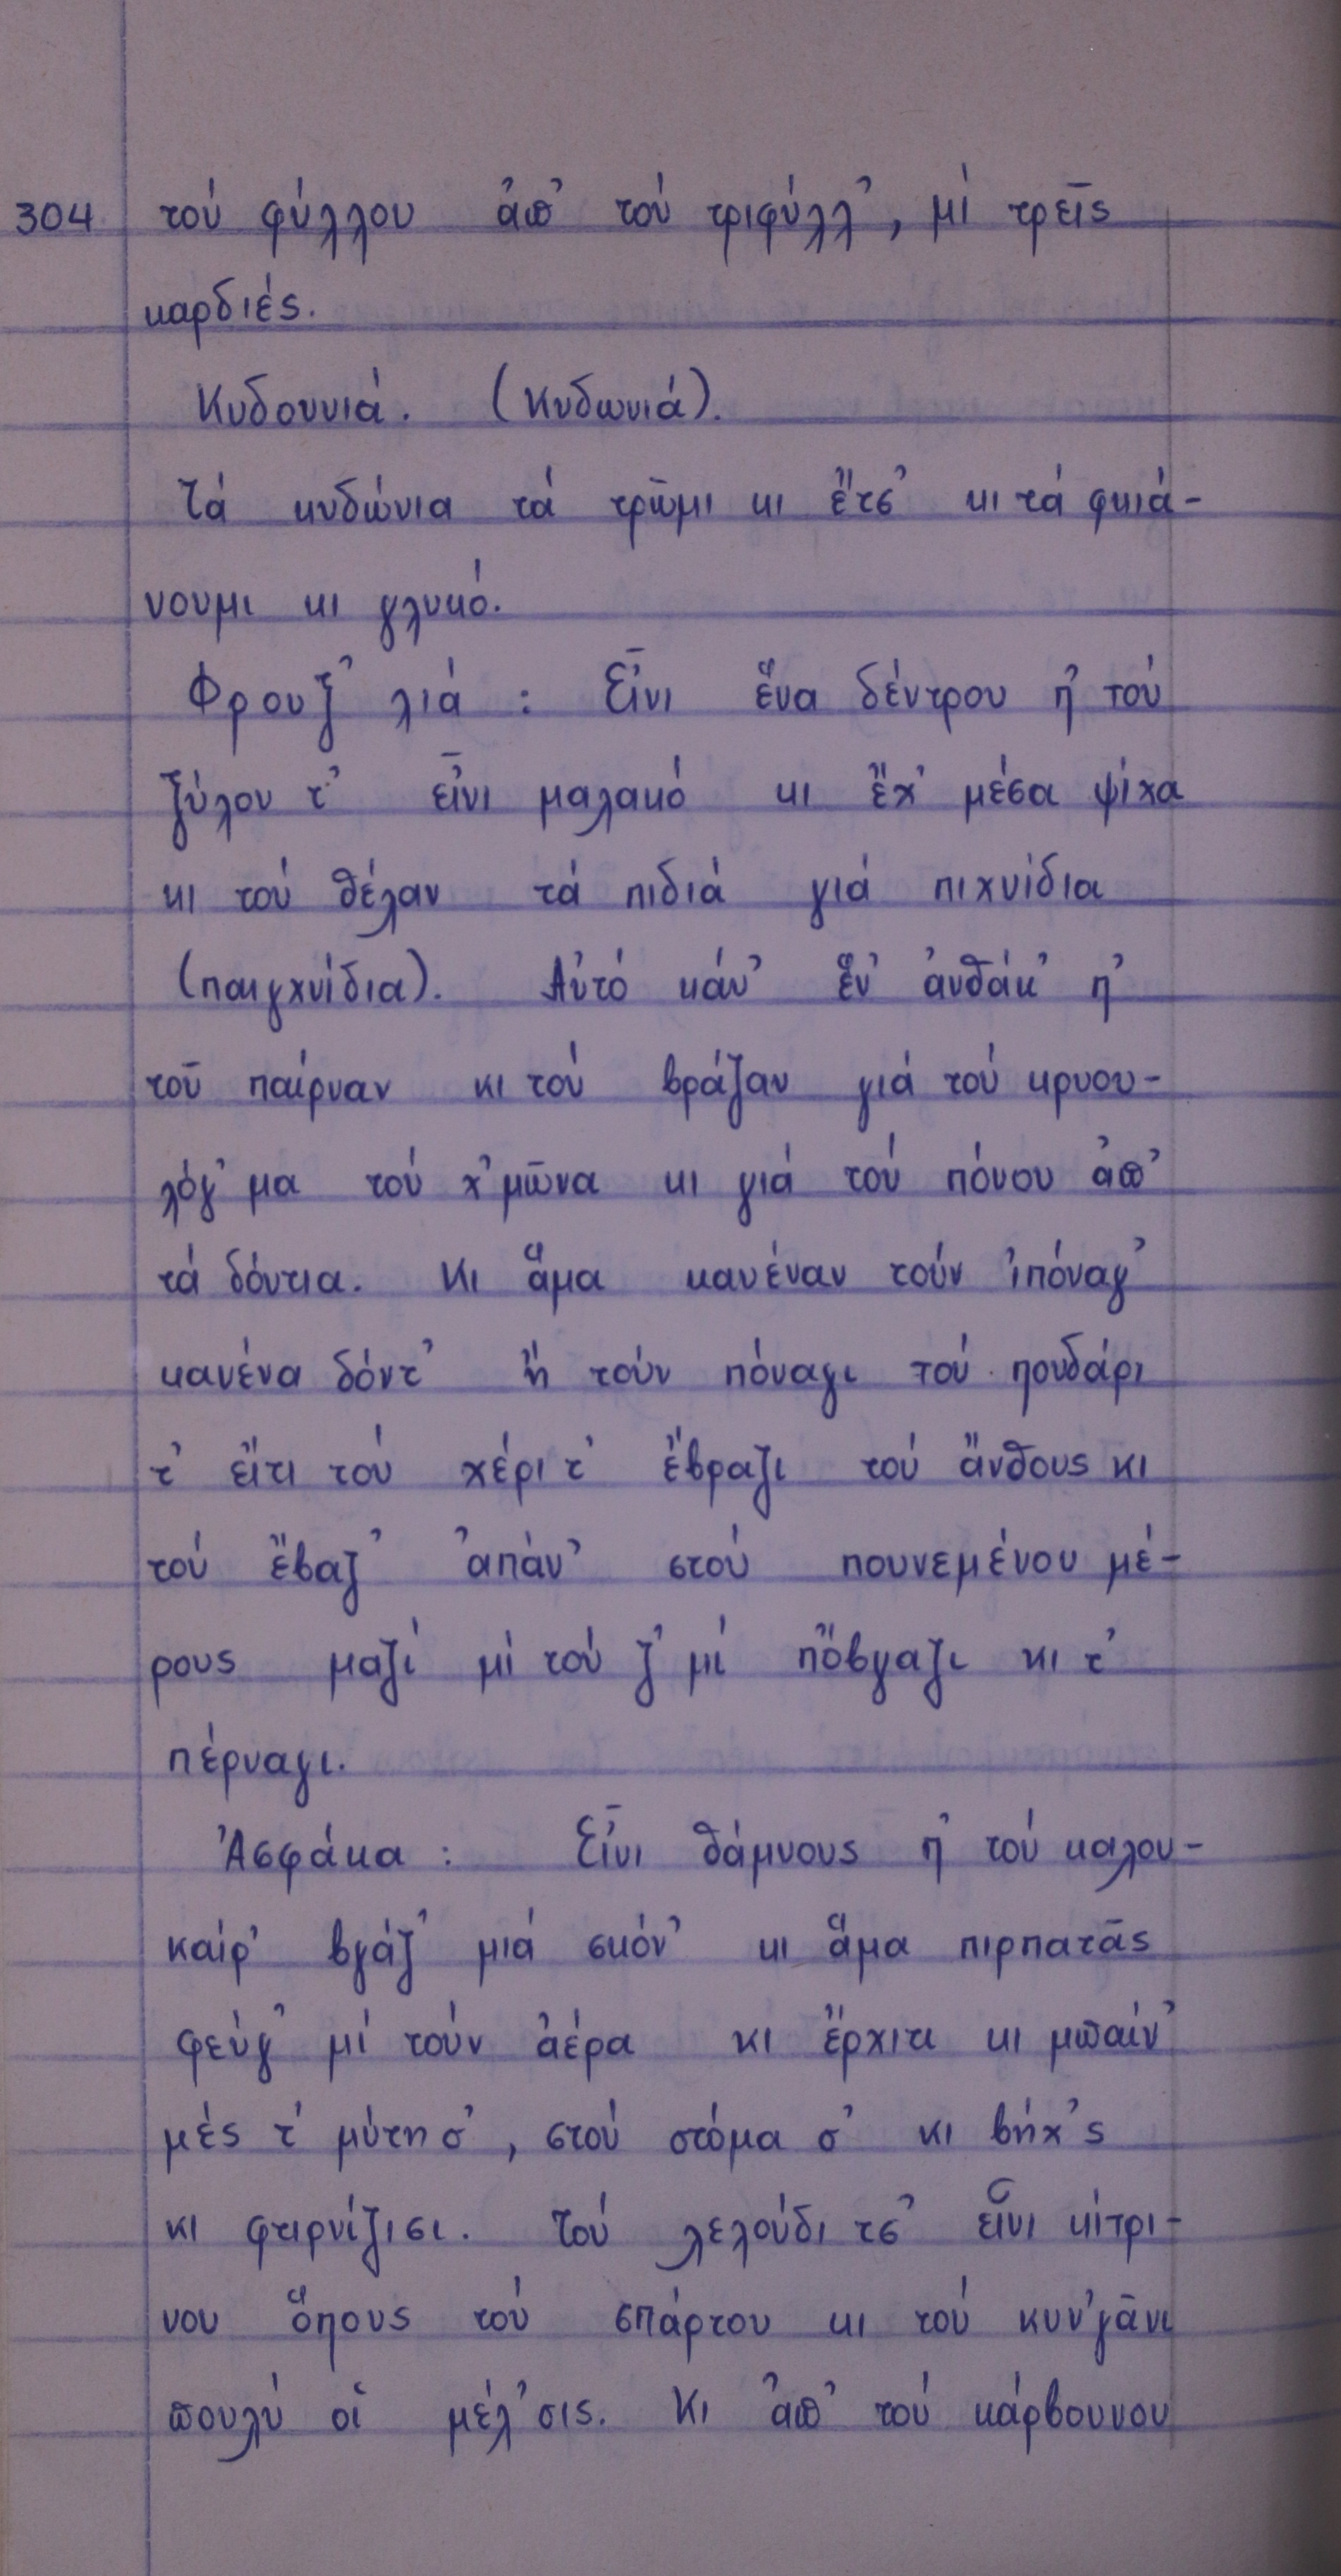 304 τού φύλλου ἀπ' τού τριφύλλ', μί τρεῖς
καρδιές.
Κυδουνιά. (Κυδωνιά).
Τά κυδώνια τά τρῶμι κι ἔτσ' κι τά φκιά-
νουμι κι γλυκό.
Φρουξ' λιά : Εἶνι ἕνα δέντρου π' τού
ξύλου τ' εἶνι μαλακό κι ἔχ' μέσα ψίχα
κι τού θέλαν τά πιδιά γιά πιχνίδια
(παιχνίδια). Αὐτό κάν' ἕν' ἀνθάκ' π'
τοῦ παίρναν κι τού βράζαν γιά τού κρυου-
λόγ' μα τού χ'μῶνα κι γιά τού πόνου ἀπ'
τά δόντια. Κι ἅμα κανέναν τούν ἰπόναγ'
κανένα δόντ' ἤ τούν πόναγι τού πουδάρι
τ' εἴτι τού χέρι τ' ἔβραζι τού ἄνθους κι
τού ἔβαζ' ἀπάν' στού πουνεμένου μέ-
ρους μαζί μί τού ζ' μί πὄβγαζι κι τ'
πέρναγι.
Ἀσφάκα : Εἶνι θάμνους π' τού καλου-
καίρ' βγάζ' μιά σκόν' κι ἅμα πιρπατᾶς
φεύγ' μί τούν ἀέρα κι ἔρχιτι κι μπαίν'
μές τ' μύτη σ', στού στόμα σ' κι βήχ'ς
κι φτιρνίζισι. Τού λελούδι τσ' εἶνι κίτρι-
νου ὅπους τού σπάρτου κι τού κυν'γᾶνι
πουλύ οἱ μέλ'σις. Κι ἀπ' τού κάρβουνου